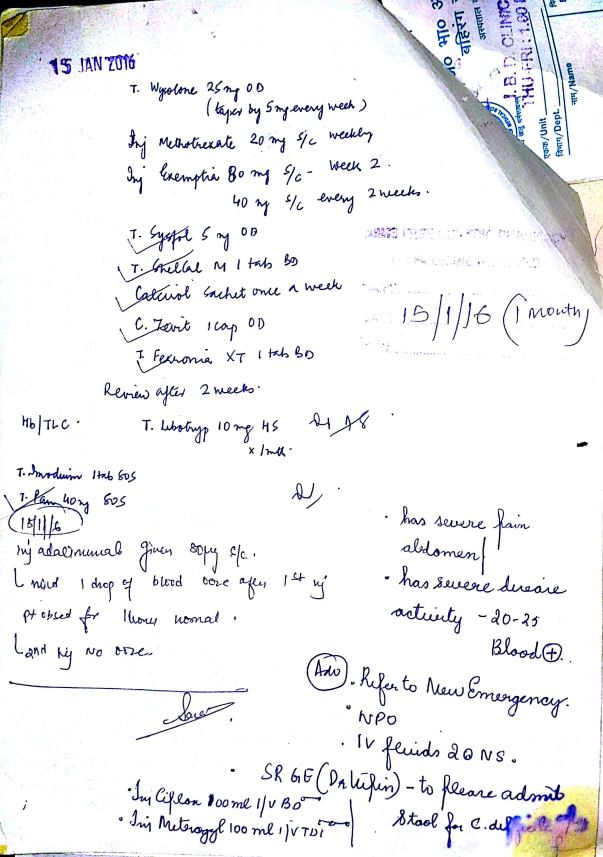 15 JAN 2016
J.B.D. CLINIC
THU. FRI : 1.00
एकक/Unit
विभाग/Dept.
नाम/Name
T. Wysolone 25mg OD
(taper by 5mg every week)
Inj Methotrexate 20 mg S/c weekly
Inj Exemptia 80 mg S/c - Week 2.
40 mg S/c every 2 weeks.
5 mg OD
T. Shellcal M 1 tab BD
Calcirol Sachet once a week
C. Zevit 1 cap OD
T. Feronia XT 1 tab BD
15/1/16 (1 Month)
Review after 2 weeks.
Hb/TLC.
T. Libotryp 10 mg HS
x 1mth.
T. Imodium 1 tab SOS
T. Pan 40mg SOS
15/1/16
Inj adalimumab given 80mg S/c.
1 drop of blood ooze after 1st inj
pt obsed for 1 hour normal.
2nd inj No ooze
• has severe pain
abdomen
• has severe disease
activity - 20-25
Blood +.
Adv
• Refer to New Emergency.
• NPO
• IV fluids 2 NS.
• SR GE (Dr) - to please admit
• Inj Ciplox 100ml I/V BD
• Inj Metrogyl 100 ml I/V TDS
Stool for C. difficile